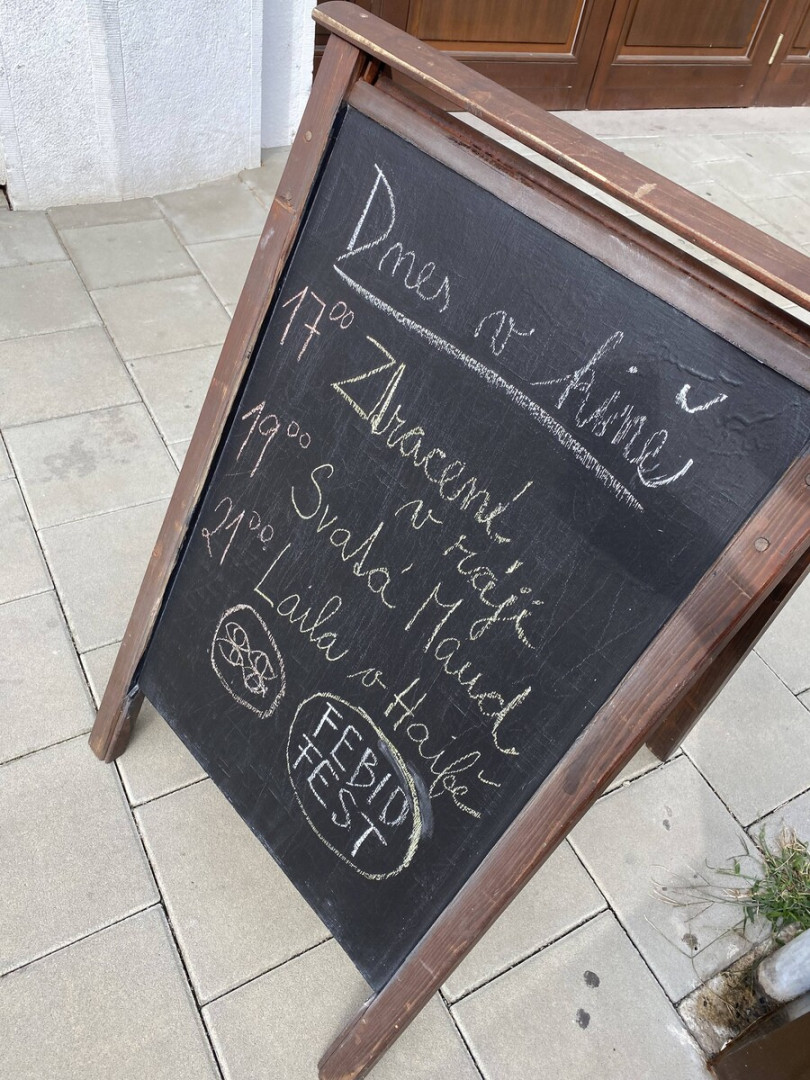 Dnes v kině
17⁰⁰ Ztraceni
v ráji
19⁰⁰ Svatá Maud
21⁰⁰ Laila v Haifě
FEBIO
FEST